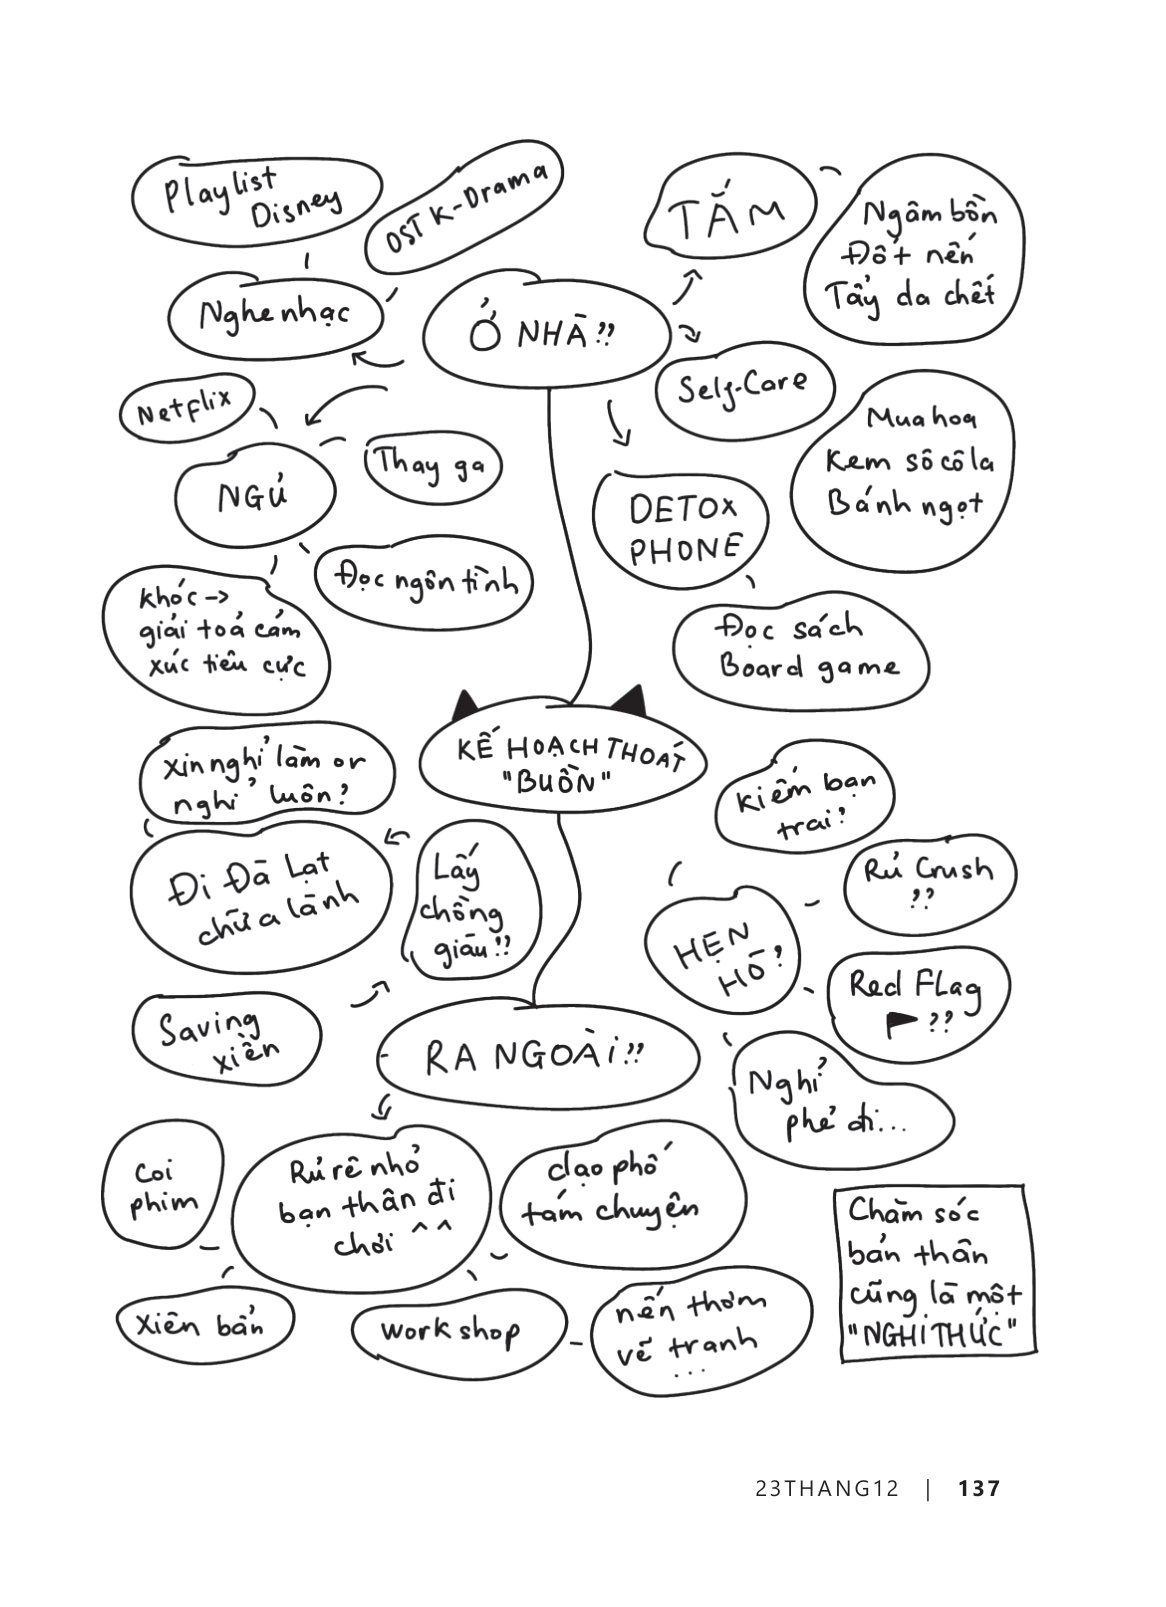 Playlist
Disney
OST K-Drama
Nghe nhạc
Ở NHÀ!!
TẮM
Ngâm bồn
Đốt nến
Tẩy da chết
Self-Care
Mua hoa
Kem sô cô la
Bánh ngọt
Netflix
NGỦ
Thay ga
Đọc ngôn tình
Khóc ->
giải toả cảm
xúc tiêu cực
DETOX
PHONE
Đọc sách
Board game
KẾ HOẠCH THOÁT
"BUỒN"
Xin nghỉ làm or
nghỉ luôn?
Đi Đà Lạt
chữa lành
Lấy
chồng
giàu!!
Saving
xiền
RA NGOÀI!!
Kiếm bạn
trai?
HẸN
HÒ?
Rủ Crush
??
Red Flag
??
Nghỉ
phẻ đi...
Coi
phim
Rủ rê nhỏ
bạn thân đi
chơi ^^
dạo phố
tám chuyện
Xiên bẩn
Work shop
nến thơm
vẽ tranh
...
Chăm sóc
bản thân
cũng là một
"NGHI THỨC"
23THANG12 | 137